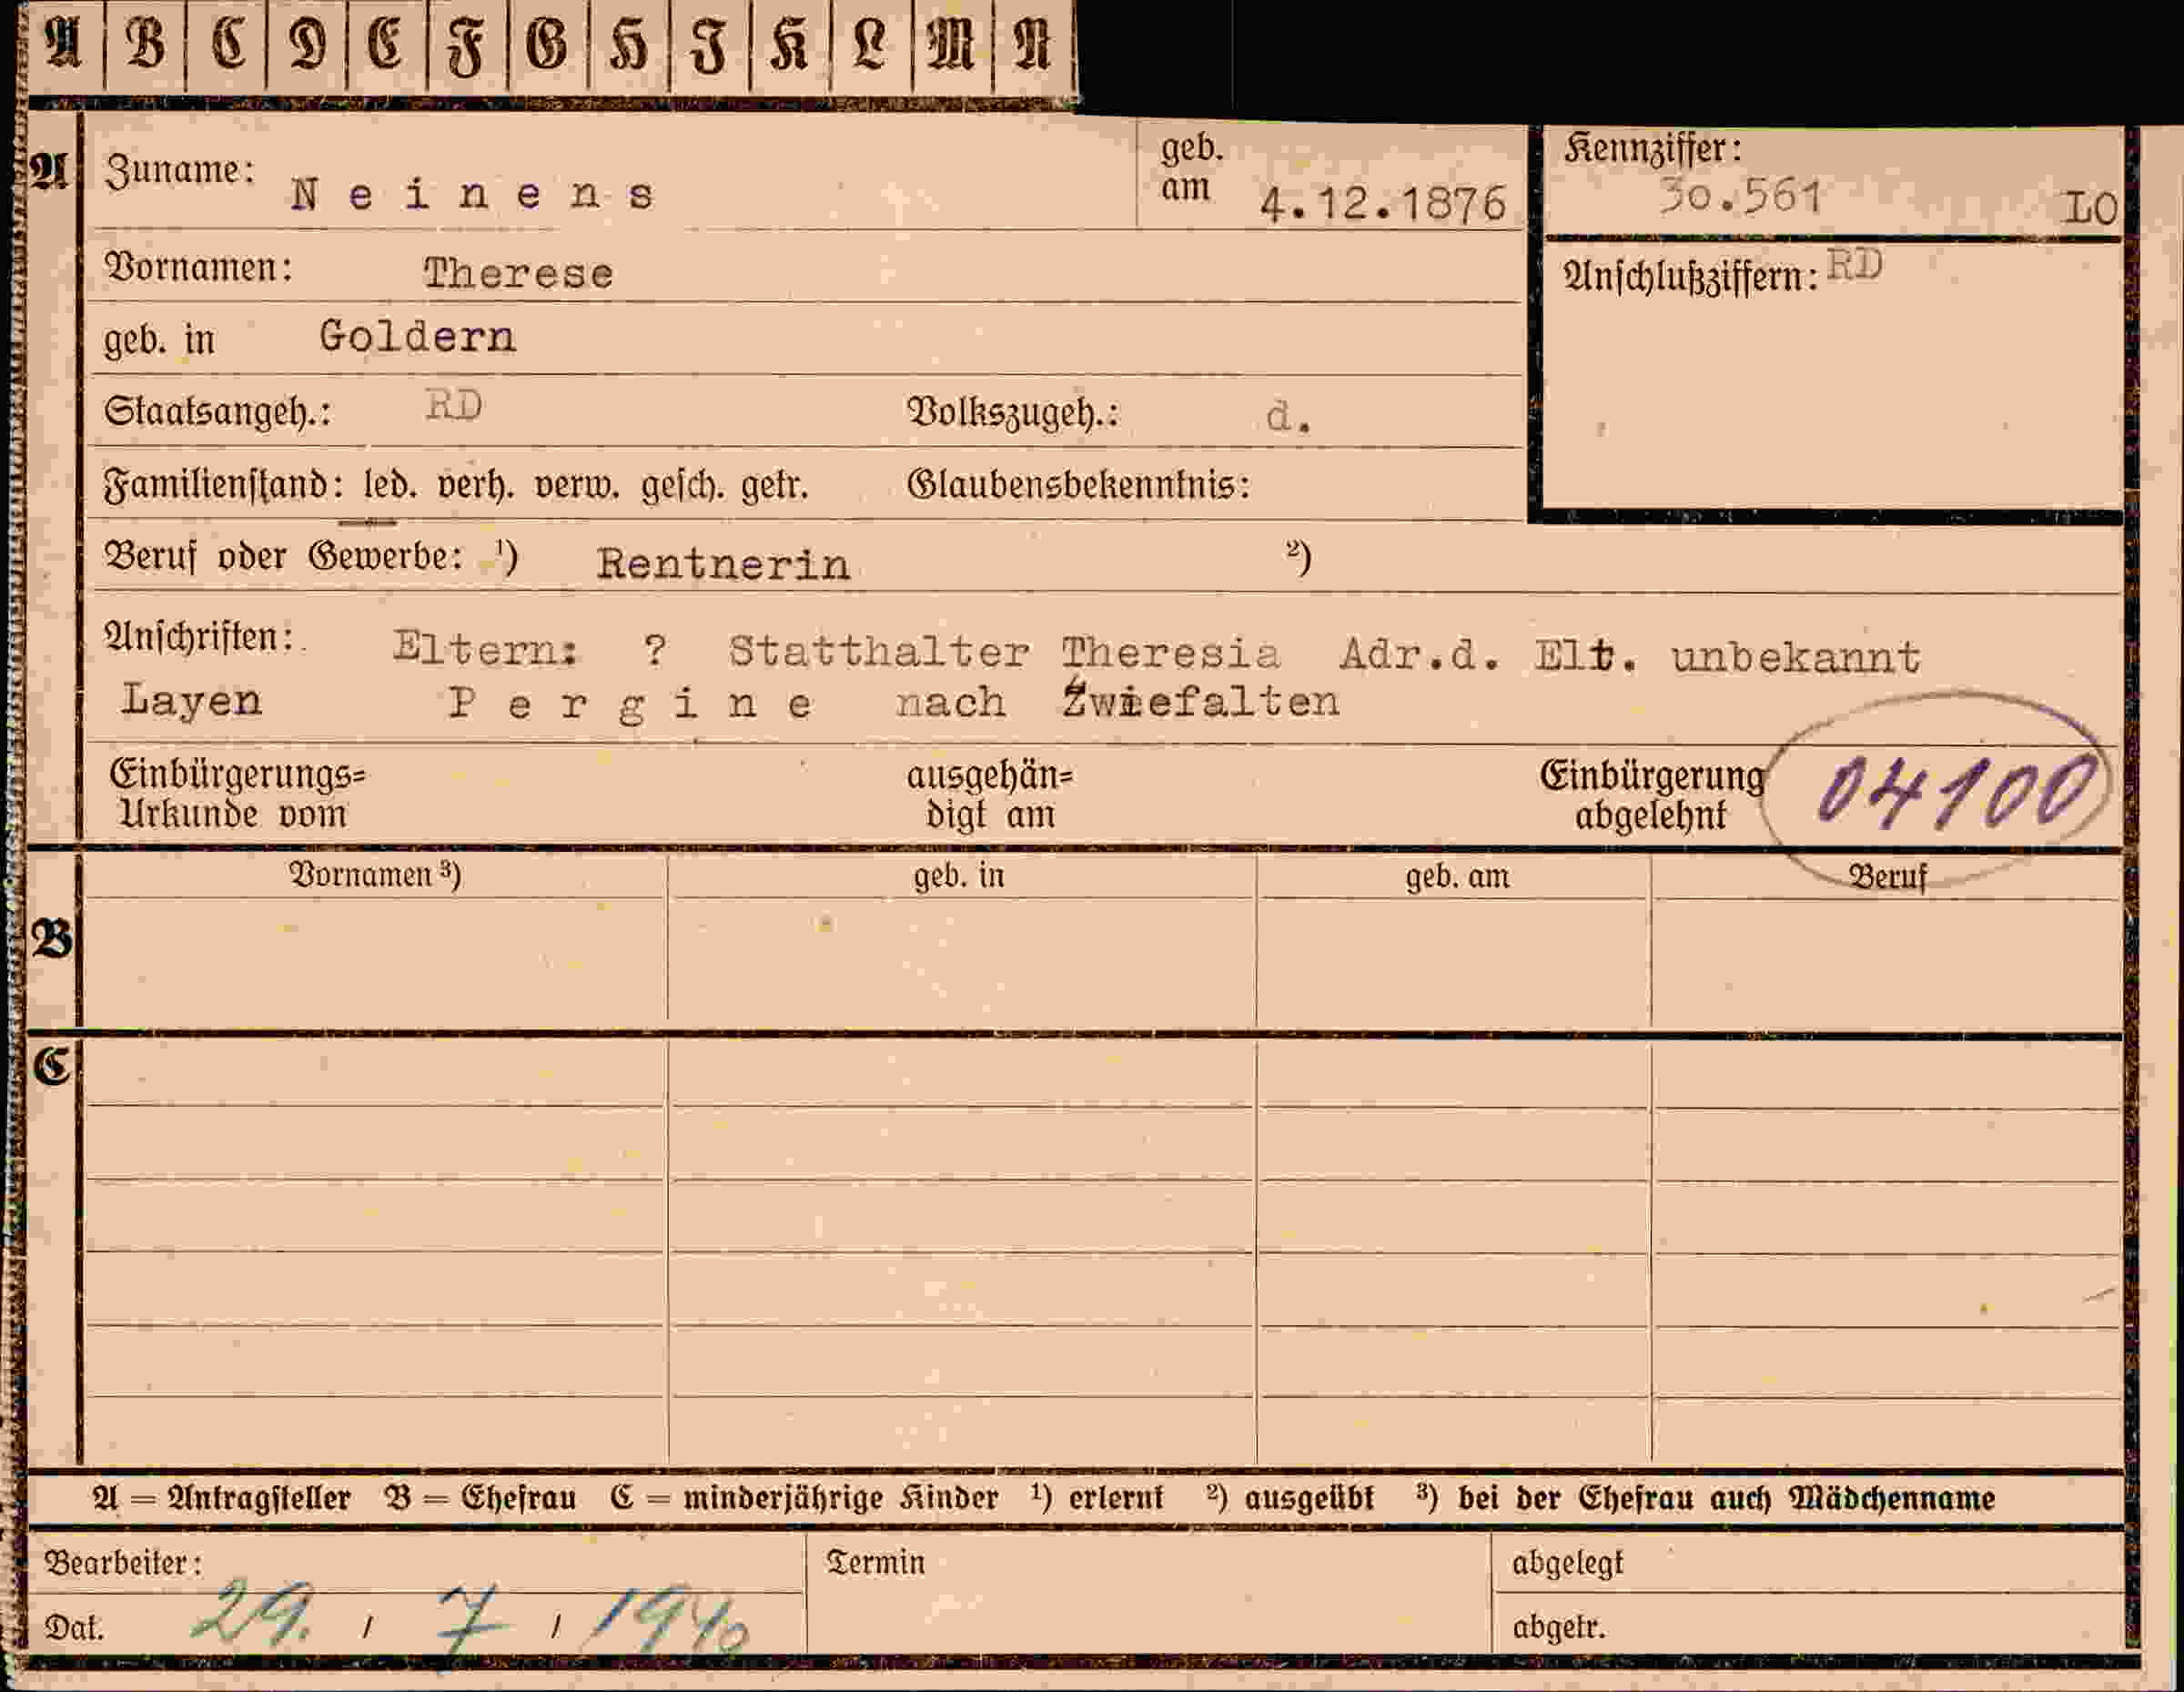 A B C D E F G H J K L M N
A Zuname: Neinens geb. am 4.12.1876 Kennziffer: 30.561 LO
Vornamen: Therese Anschlußziffern: RD
geb. in Goldern
Staatsangeh.: RD Volkszugeh.: d.
Familienstand: led. verh. verw. gesch. getr. Glaubensbekenntnis:
Beruf oder Gewerbe: ¹) Rentnerin ²)
Anschriften: Eltern: ? Statthalter Theresia Adr.d. Elt. unbekannt
Layen Pergine nach Zwiefalten
Einbürgerungs= ausgehän= Einbürgerung 04100
Urkunde vom digt am abgelehnt
Vornamen ³) geb. in geb. am Beruf
B
C
A = Antragsteller B = Ehefrau C = minderjährige Kinder ¹) erlernt ²) ausgeübt ³) bei der Ehefrau auch Mädchenname
Bearbeiter: Termin abgelegt
Dat. 29. / 7 / 1940 abgetr.